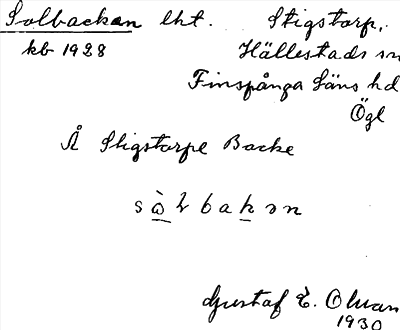 Solbackan lht. Stigstorp,
kb 1928 Hällestads sn
Finspånga läns hd
Ögl
Å Stigstorpe Backe
Gustaf E.
1930